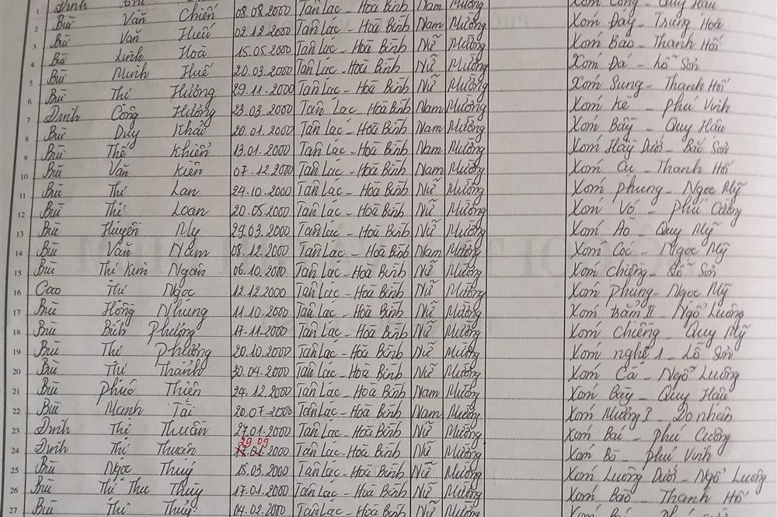 1 Đinh 08.08.2000 Tân Lạc - Hoà Bình Nam Mường Xóm Cộng - Quy Hậu
2 Bùi Văn Chiến 02.12.2000 Tân Lạc - Hoà Bình Nam Mường Xóm Đày - Trung Hoà
3 Bùi Văn Hiếu 15.05.2000 Tân Lạc - Hoà Bình Nữ Mường Xóm Báo - Thanh Hối
4 Bùi Linh Hoà 20.03.2000 Tân Lạc - Hoà Bình Nữ Mường Xóm Đá - Lỗ Sơn
5 Bùi Minh Huế 29.11.2000 Tân Lạc - Hoà Bình Nữ Mường Xóm Sung - Thanh Hối
6 Bùi Thị Hường 23.03.2000 Tân Lạc - Hoà Bình Nam Mường Xóm Kè - Phú Vinh
7 Đinh Công Hưởng 20.01.2000 Tân Lạc - Hoà Bình Nam Mường Xóm Bậy - Quy Hậu
8 Bùi Duy Khải 13.01.2000 Tân Lạc - Hoà Bình Nam Mường Xóm Hày Dưới - Bắc Sơn
9 Bùi Thế Khiển 07.12.2000 Tân Lạc - Hoà Bình Nam Mường Xóm Cụ - Thanh Hối
10 Bùi Văn Kiên 24.10.2000 Tân Lạc - Hoà Bình Nữ Mường Xóm Phung - Ngọc Mỹ
11 Bùi Thị Lan 20.05.2000 Tân Lạc - Hoà Bình Nữ Mường Xóm Vó - Phú Cường
12 Bùi Thị Loan 29.03.2000 Tân Lạc - Hoà Bình Nữ Mường Xóm Áo - Quy Mỹ
13 Bùi Huyền My 08.12.2000 Tân Lạc - Hoà Bình Nam Mường Xóm Cóc - Ngọc Mỹ
14 Bùi Văn Nam 06.10.2000 Tân Lạc - Hoà Bình Nữ Mường Xóm Chiềng - Lỗ Sơn
15 Bùi Thị Kim Ngân 12.12.2000 Tân Lạc - Hoà Bình Nữ Mường Xóm Phung - Ngọc Mỹ
16 Cao Thị Ngọc 11.10.2000 Tân Lạc - Hoà Bình Nữ Mường Xóm Trăm II - Ngổ Luông
17 Bùi Hồng Nhung 17.11.2000 Tân Lạc - Hoà Bình Nữ Mường Xóm Chiềng - Quy Mỹ
18 Bùi Bích Phượng 20.10.2000 Tân Lạc - Hoà Bình Nữ Mường Xóm Nghẹ 1 - Lỗ Sơn
19 Bùi Thị Phương 30.04.2000 Tân Lạc - Hoà Bình Nữ Mường Xóm Cá - Ngổ Luông
20 Bùi Thị Thanh 24.12.2000 Tân Lạc - Hoà Bình Nam Mường Xóm Bậy - Quy Hậu
21 Bùi Phúc Thiên 20.07.2000 Tân Lạc - Hoà Bình Nam Mường Xóm Mường I - Do Nhân
22 Bùi Mạnh Tài 27.01.2000 Tân Lạc - Hoà Bình Nữ Mường Xóm Bái - Phú Cường
23 Đinh Thị Thuần 29.09 2000 Tân Lạc - Hoà Bình Nữ Mường Xóm Bì - Phú Vinh
24 Đinh Thị Thuân 18.03.2000 Tân Lạc - Hoà Bình Nữ Mường Xóm Luông Dưới - Ngổ Luông
25 Bùi Ngọc Thúy 17.01.2000 Tân Lạc - Hoà Bình Nữ Mường Xóm Báo - Thanh Hối
26 Bùi Thị Thu Thủy 04.02.2000 Tân Lạc - Hoà Bình Nữ Mường Xóm
27 Bùi Thị Thuỷ